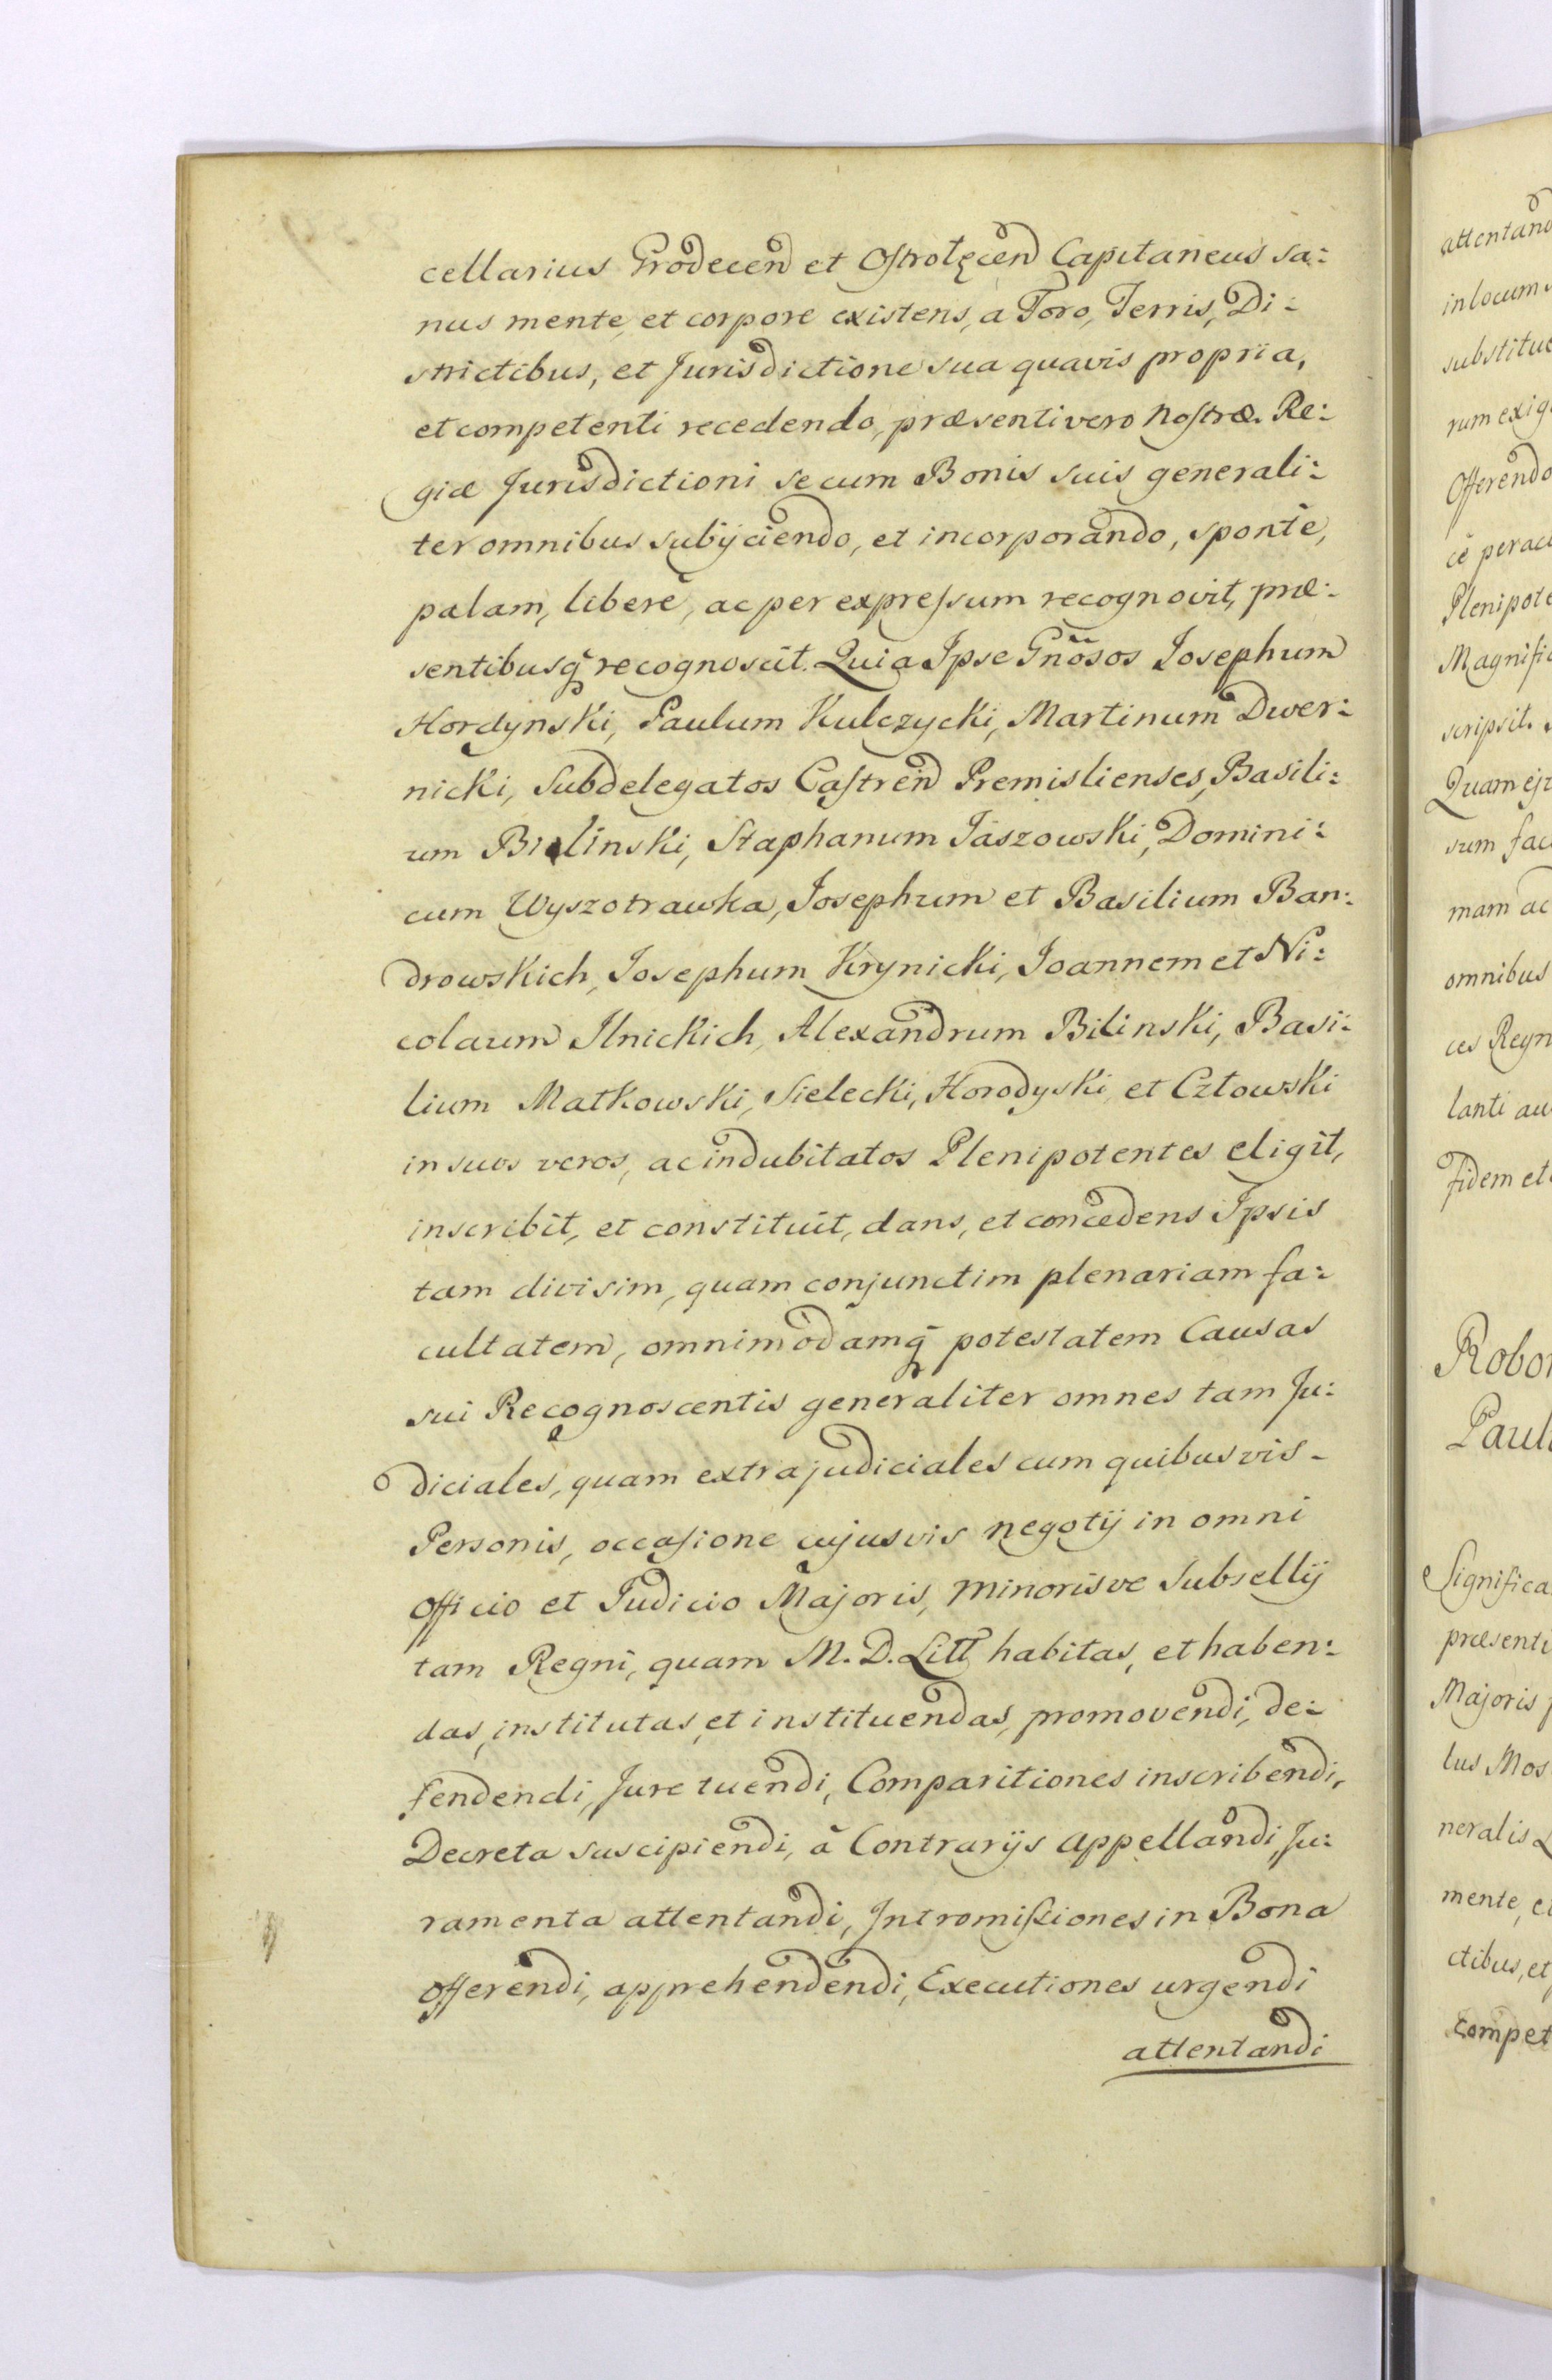 cellarius Grodecen et Ostrołęcen Capitaneus sa:
nus mente, et corpore existens, a Foro, Terris, Di:
strictibus, et Jurisdictione sua quavis propria,
et competenti recedendo, præsenti vero Nostræ Re:
giæ Jurisdictioni se cum Bonis suis generali:
ter omnibus subijciendo, et incorporando, sponte,
palam, libere, ac per expressum recognovit, præ:
sentibusq recognoscit. Quia Ipse Gnõsos Josephum
Hordynski, Paulum Kulczycki, Martinum Dwer:
nicki, Subdelegatos Castren Premislienses, Basili:
um Bilinski, Staphanum Jaszowski, Domini:
cum Wyszotrawka, Josephum et Basilium Ban:
drowskich, Josephum Krynicki, Joannem et Ni:
colaum Ilnickich, Alexandrum Bilinski, Basi:
lium Matkowski, Sielecki, Horodyski et Cztowski
in suos veros, ac indubitatos Plenipotentes eligit,
inscribit, et constituit, dans, et concedens Ipsis
tam divisim, quam conjunctim plenariam fa:
cultatem, omnimodamq potestatem Causas
sui Recognoscentis generaliter omnes tam Ju:
diciales, quam extrajudiciales cum quibusvis -
Personis, occasione cujusvis negotij in omni
Officio et Judicio Majoris, Minorisve Subsellij
tam Regni, quam M. D. Litt habitas, et haben:
das, institutas, et instituendas, promovendi, de:
fendendi, Jure tuendi, Comparitiones inscribendi,
Decreta suscipiendi, â Contrarijs appellandi, Ju:
ramenta attentandi, Intromissiones in Bona
offerendi, apprehendendi, Executiones urgendi
attentandi
attentand
in locum
substitue
rum exig
Offerendo
ce perac
Plenipote
Magnific
scripsit.
Quam ejz
sum fac
mam ac
omnibus
ces Reyn
lanti au
fidem et
Robor
Paul
Significa
præsenti
Majoris
lus Mos
neralis
mente, e
ctibus, et
compet